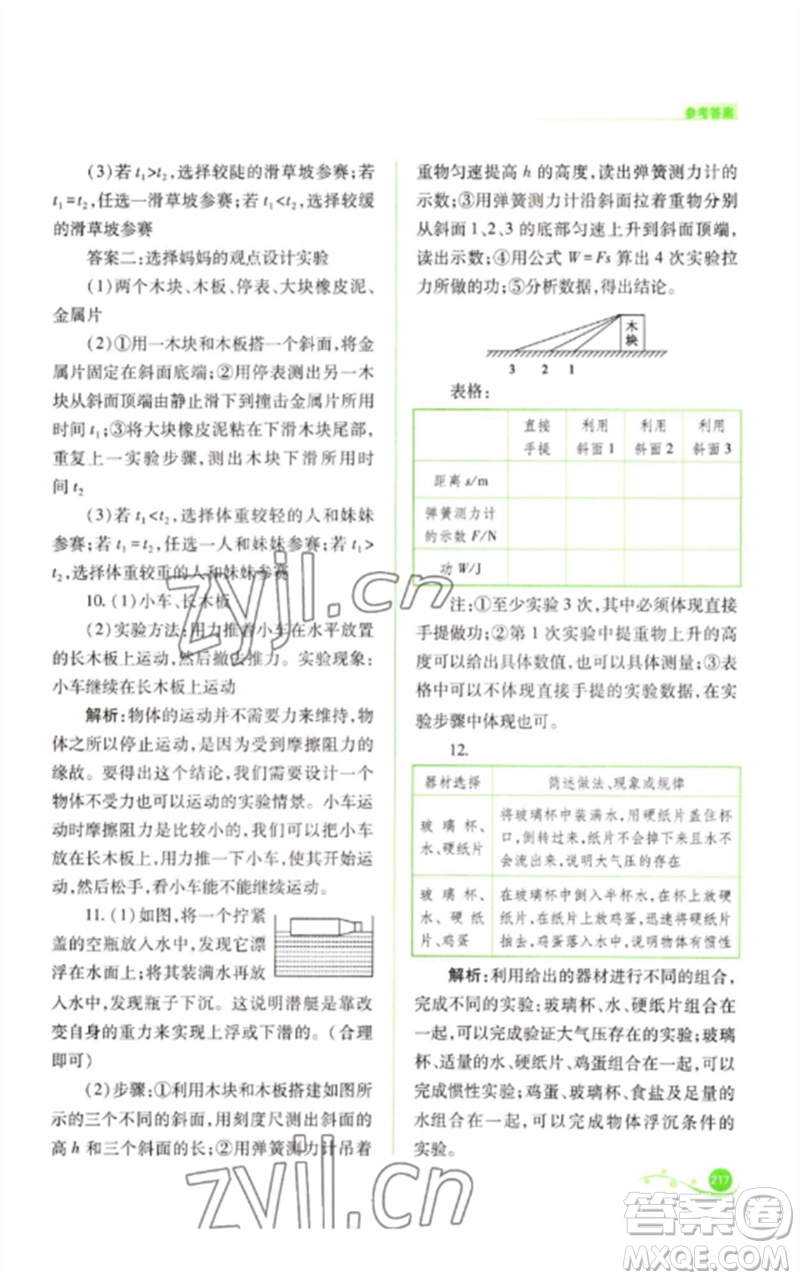 参考答案
(3)若 t₁>t₂,选择较陡的滑草坡参赛;若
t₁=t₂,任选一滑草坡参赛;若 t₁<t₂,选择较缓
的滑草坡参赛
答案二:选择妈妈的观点设计实验
(1)两个木块、木板、停表、大块橡皮泥、
金属片
(2)①用一木块和木板搭一个斜面,将金
属片固定在斜面底端;②用停表测出另一木
块从斜面顶端由静止滑下到撞击金属片所用
时间 t₁;③将大块橡皮泥粘在下滑木块尾部,
重复上一实验步骤,测出木块下滑所用时
间 t₂
(3)若 t₁<t₂,选择体重较轻的人和妹妹
参赛;若 t₁=t₂,任选一人和妹妹参赛;若 t₁>
t₂,选择体重较重的人和妹妹参赛
10. (1)小车、长木板
(2)实验方法:用力推着小车在水平放置
的长木板上运动,然后撤去推力。实验现象:
小车继续在长木板上运动
解析:物体的运动并不需要力来维持,物
体之所以停止运动,是因为受到摩擦阻力的
缘故。要得出这个结论,我们需要设计一个
物体不受力也可以运动的实验情景。小车运
动时摩擦阻力是比较小的,我们可以把小车
放在长木板上,用力推一下小车,使其开始运
动,然后松手,看小车能不能继续运动。
11. (1)如图,将一个拧紧
盖的空瓶放入水中,发现它漂
浮在水面上;将其装满水再放
入水中,发现瓶子下沉。这说明潜艇是靠改
变自身的重力来实现上浮或下潜的。(合理
即可)
(2)步骤:①利用木块和木板搭建如图所
示的三个不同的斜面,用刻度尺测出斜面的
高 h 和三个斜面的长;②用弹簧测力计吊着
重物匀速提高 h 的高度,读出弹簧测力计的
示数;③用弹簧测力计沿斜面拉着重物分别
从斜面 1、2、3 的底部匀速上升到斜面顶端,
读出示数;④用公式 W=Fs 算出 4 次实验拉
力所做的功;⑤分析数据,得出结论。
木块
3 2 1
表格:
直接手提 利用斜面 1 利用斜面 2 利用斜面 3
距离 s/m
弹簧测力计的示数 F/N
功 W/J
注:①至少实验 3 次,其中必须体现直接
手提做功;②第 1 次实验中提重物上升的高
度可以给出具体数值,也可以具体测量;③表
格中可以不体现直接手提的实验数据,在实
验步骤中体现也可。
12.
器材选择 简述做法、现象或规律
玻璃杯、水、硬纸片 将玻璃杯中装满水,用硬纸片盖住杯
口,倒转过来,纸片不会掉下来且水不
会流出来,说明大气压的存在
玻璃杯、水、硬纸片、鸡蛋 在玻璃杯中倒入半杯水,在杯上放硬
纸片,纸片上放鸡蛋,迅速将硬纸片
抽去,鸡蛋落入水中,说明物体有惯性
解析:利用给出的器材进行不同的组合,
完成不同的实验:玻璃杯、水、硬纸片组合在
一起,可以完成验证大气压存在的实验;玻璃
杯、适量的水、硬纸片、鸡蛋组合在一起,可以
完成惯性实验;鸡蛋、玻璃杯、食盐及足量的
水组合在一起,可以完成物体浮沉条件的
实验。
217
zyjl.cn
zyjl.cn
答案卷
MXQE.COM